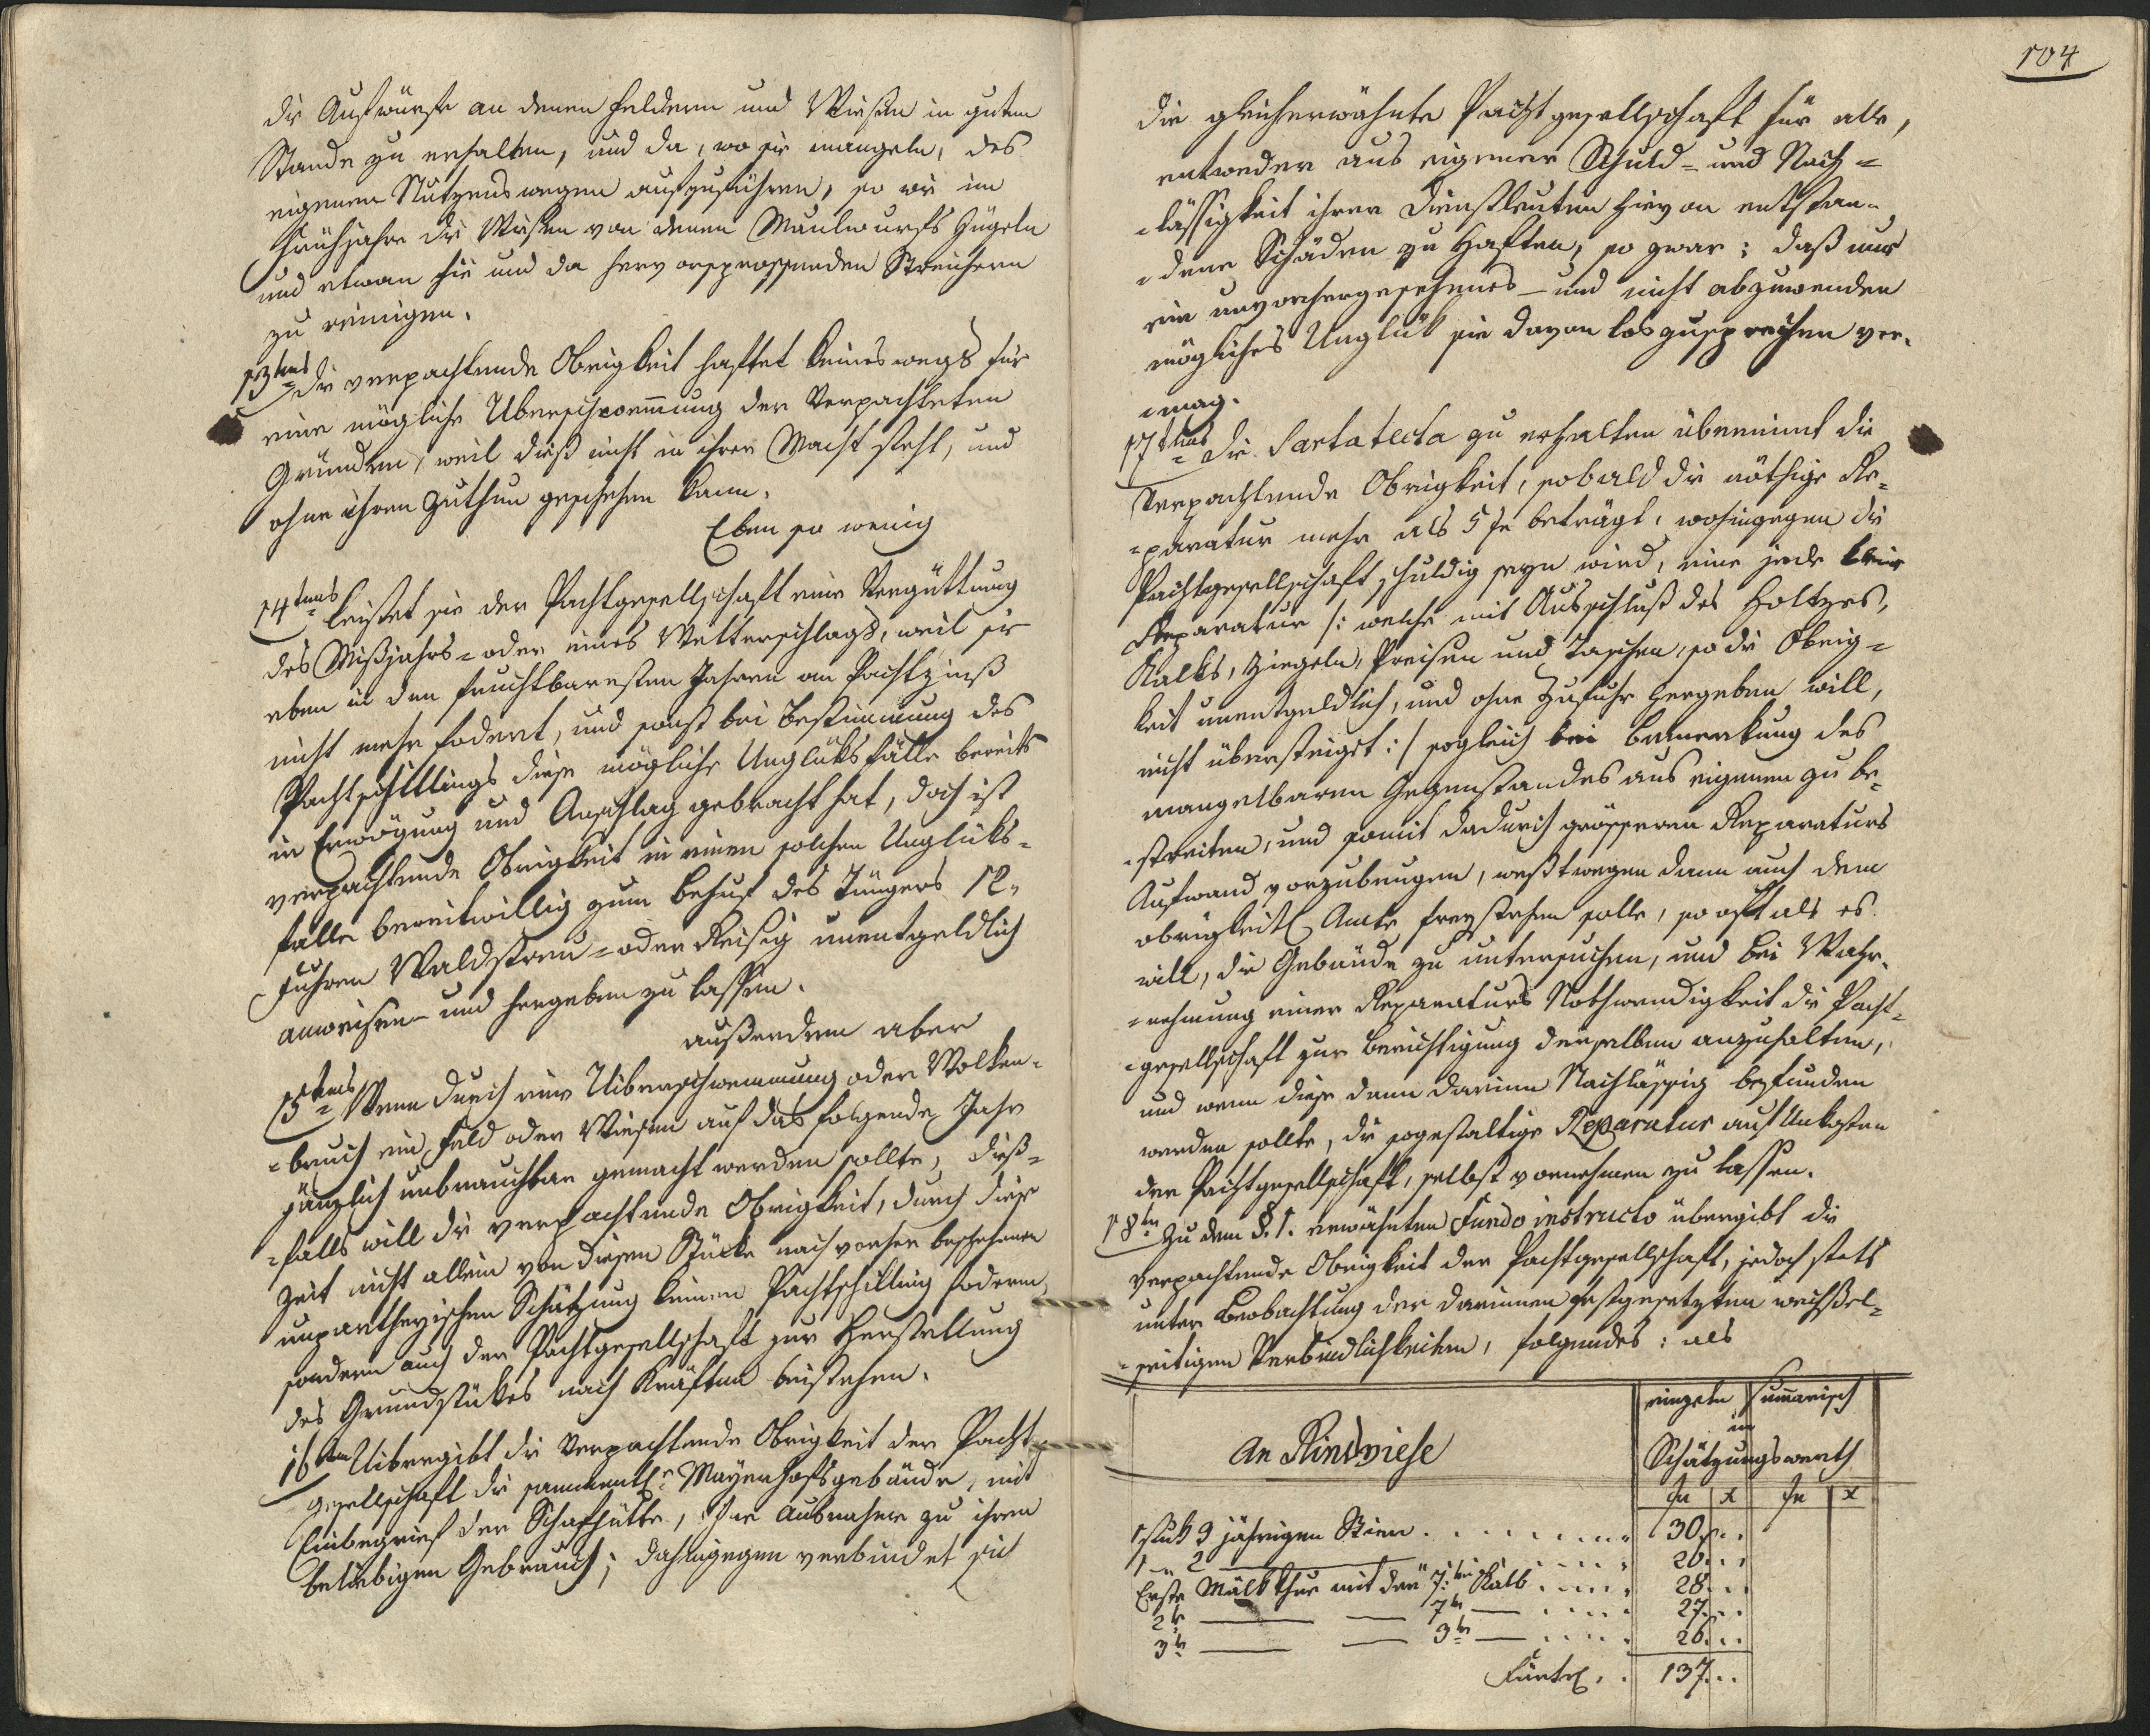 die Aufwürfe an denen Feldern und Wiesen in gutem
Stande zu erhalten, und da, wo sie mangeln, des
eigenen Nutzens wegen aufzuführen, so wie im
Frühjahre die Wiesen von denen Maulwurfs Hügeln
und etwan hie und da hervorsprossenden Sträuchern
zu reinigen.
13tens Die verpachtende Obrigkeit haftet keineswegs für
eine mögliche Überschwemmung der Verpachteten
Gründen, weil dieß nicht in ihrer Macht steht, und
ohne ihren Zuthun geschehen kann.
Eben so wenig
14tens leistet sie der Pachtgesellschaft eine Vergüttung
des Mißjahrs- oder eines Wetterschlags, weil sie
eben in den fruchtbaresten Jahren an Pachtzinß
nicht mehr fodert, und sonst bei Bestimmung des
Pachtschillings diese mögliche Unglüksfälle bereits
in Erwögung und Anschlag gebracht hat, doch ist
verpachtende Obrigkeit in einen solchen Unglüks-
falle bereitwillig zum Behuf des Düngers 12
Fuhren Waldstreu- oder Reisig unentgeldlich
anweisen- und hergeben zu lassen.
außerdem aber
15tens Wenn durch eine Uiberschwemmung oder Wolken-
-bruch ein Feld oder Wiesen auf das folgende Jahr
gänzlich unbrauchbar gemacht werden sollte, dieß-
-falls will die verpachtende Obrigkeit, durch diese
Zeit nicht allein von diesem Stücke nach vorher beschehener
unpartheyischen Schätzung keinen Pachtschilling fodern,
sondern auch der Pachtgesellschaft zur Herstellung
des Grundstükes nach Kräften beistehen.
16ten Uibergibt die Verpachtende Obrigkeit der Pacht-
gesellschaft die sammentl. Mayerhofsgebäude, mit
Einbegrief der Schafhütte, ohne Ausnahme zu ihren
beliebigen Gebrauch; dahingegen verbindet sich
104
die gleicherwähnte Pachtgesellschaft für alle,
entweder aus eigener Schuld- und Nach-
-lässigkeit ihrer Dienstleuten hievon entstan-
-dene Schäden zu Haften, so zwar: daß nur
ein unvorhergesehenes- und nicht abzuwenden
mögliches Unglük sie davon loszusprechen ver-
-mag.
17tens Die Sartatecta zu erhalten übernimt die
Verpachtende Obrigkeit, sobald die nöthige Re-
-paratur mehr als 5 fr beträgt, wohingegen die
Pachtgesellschaft schuldig seyn wird, eine jede kleine
Reparatur /: welche mit Ausschluß des Holtzes,
Kalks, Ziegeln, und so die Obrig-
keit unentgeldlich, und ohne Zufuhr hergeben will,
nicht übersteiget :/ sogleich bei Bemerkung des
mangelbaren Gegenstandes aus eigenen zu be-
-streiten, und somit dadurch grösseren Reparaturs
Aufwand vorzubeugen, weßtwegen dann auch dem
obrigkeitl. Amte freystehen solle, so oft als es
will, die Gebäude zu untersuchen, und bei Wahr-
-nehmung einer Reparaturs Nothwendigkeit die Pacht-
-gesellschaft zur Berichtigung derselben anzuhalten,
und wenn diese dann darinn Nachlässig befunden
werden sollte, die sogestaltige Reparatur auf Unkosten
der Pachtgesellschaft, selbst vornehmen zu lassen.
18ten Zu dem §. 1. erwähnten Fundo instructo übergibt die
verpachtende Obrigkeit der Pachtgesellschaft, jedoch stets
unter Beobachtung der darinnen festgesetzten wechsel-
-seitigen Verbindlichkeiten, folgendes: als
einzeln Summarisch
im
An Rindviehe Schätzungswerth
fr x fr x
1 stuk 3 jährigen Stier 30
1 " 2 26
Erste Mälk Khue mit den 7ten Kalb 28
2te 7ten 27
3te 3ten 26
Fürtrl. 137